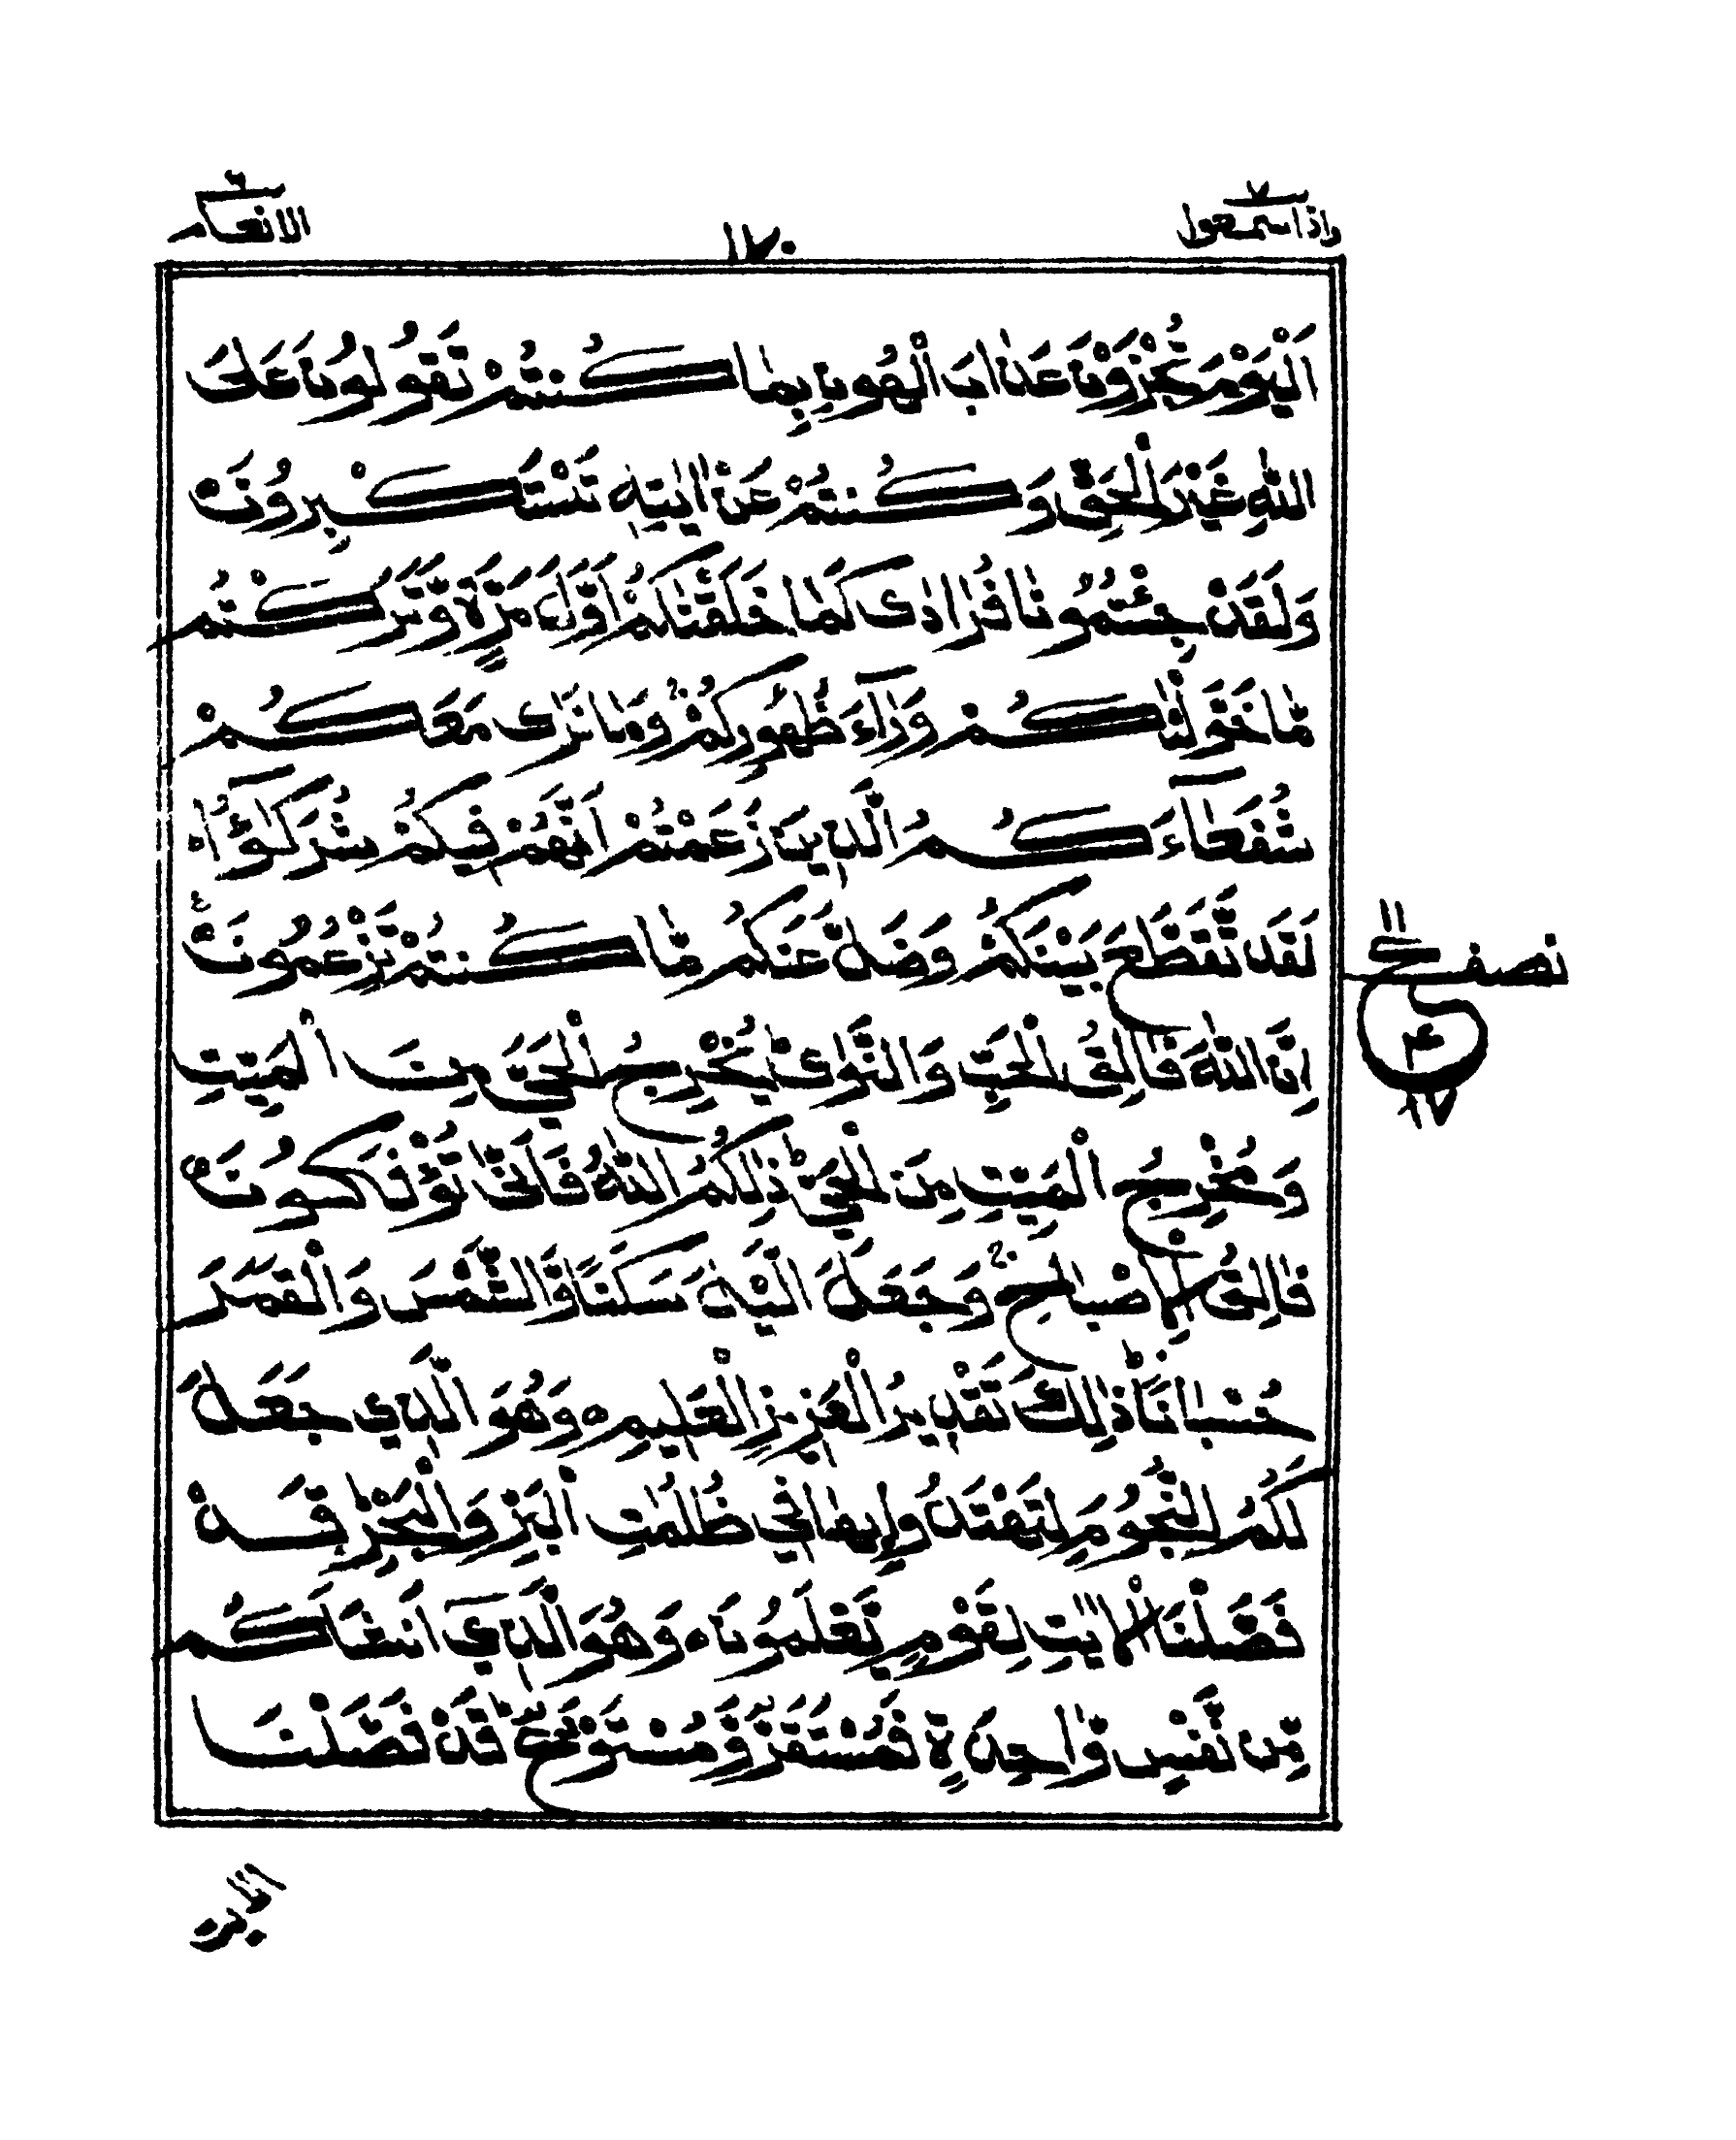 واذا سمعوا ٧
١٧٠
الانعام ٦
اَلْيَوْمَ تُجْزَوْنَ عَذَابَ الْهُوْنِ بِمَا كُنْتُمْ تَقُوْلُوْنَ عَلَى
اللّٰهِ غَيْرَ الْحَقِّ وَ كُنْتُمْ عَنْ اٰيٰتِهٖ تَسْتَكْبِرُوْنَ
وَلَقَدْ جِئْتُمُوْنَا فُرَادٰى كَمَا خَلَقْنٰكُمْ اَوَّلَ مَرَّةٍ وَّتَرَكْتُمْ
مَّا خَوَّلْنٰكُمْ وَرَآءَ ظُهُوْرِكُمْ ۚ وَمَا نَرٰى مَعَكُمْ
شُفَعَآءَكُمُ الَّذِيْنَ زَعَمْتُمْ اَنَّهُمْ فِيْكُمْ شُرَكٰٓؤُا ؕ
لَقَدْ تَّقَطَّعَ بَيْنَكُمْ وَضَلَّ عَنْكُمْ مَّا كُنْتُمْ تَزْعُمُوْنَ
اِنَّ اللّٰهَ فَالِقُ الْحَبِّ وَالنَّوٰى ؕ يُخْرِجُ الْحَيَّ مِنَ الْمَيِّتِ
وَمُخْرِجُ الْمَيِّتِ مِنَ الْحَيِّ ؕ ذٰلِكُمُ اللّٰهُ فَاَنّٰى تُؤْفَكُوْنَ
فَالِقُ الْاِصْبَاحِ ۚ وَجَعَلَ الَّيْلَ سَكَنًا وَّالشَّمْسَ وَالْقَمَرَ
حُسْبَانًا ؕ ذٰلِكَ تَقْدِيْرُ الْعَزِيْزِ الْعَلِيْمِ ٥ وَهُوَ الَّذِيْ جَعَلَ
لَكُمُ النُّجُوْمَ لِتَهْتَدُوْا بِهَا فِيْ ظُلُمٰتِ الْبَرِّ وَالْبَحْرِ ؕ قَدْ
فَصَّلْنَا الْاٰيٰتِ لِقَوْمٍ يَّعْلَمُوْنَ ٥ وَهُوَ الَّذِيْٓ اَنْشَاَكُمْ
مِّنْ نَّفْسٍ وَّاحِدَةٍ فَمُسْتَقَرٌّ وَّمُسْتَوْدَعٌ ؕ قَدْ فَصَّلْنَا
نصف
ع
١١
٤
١٧